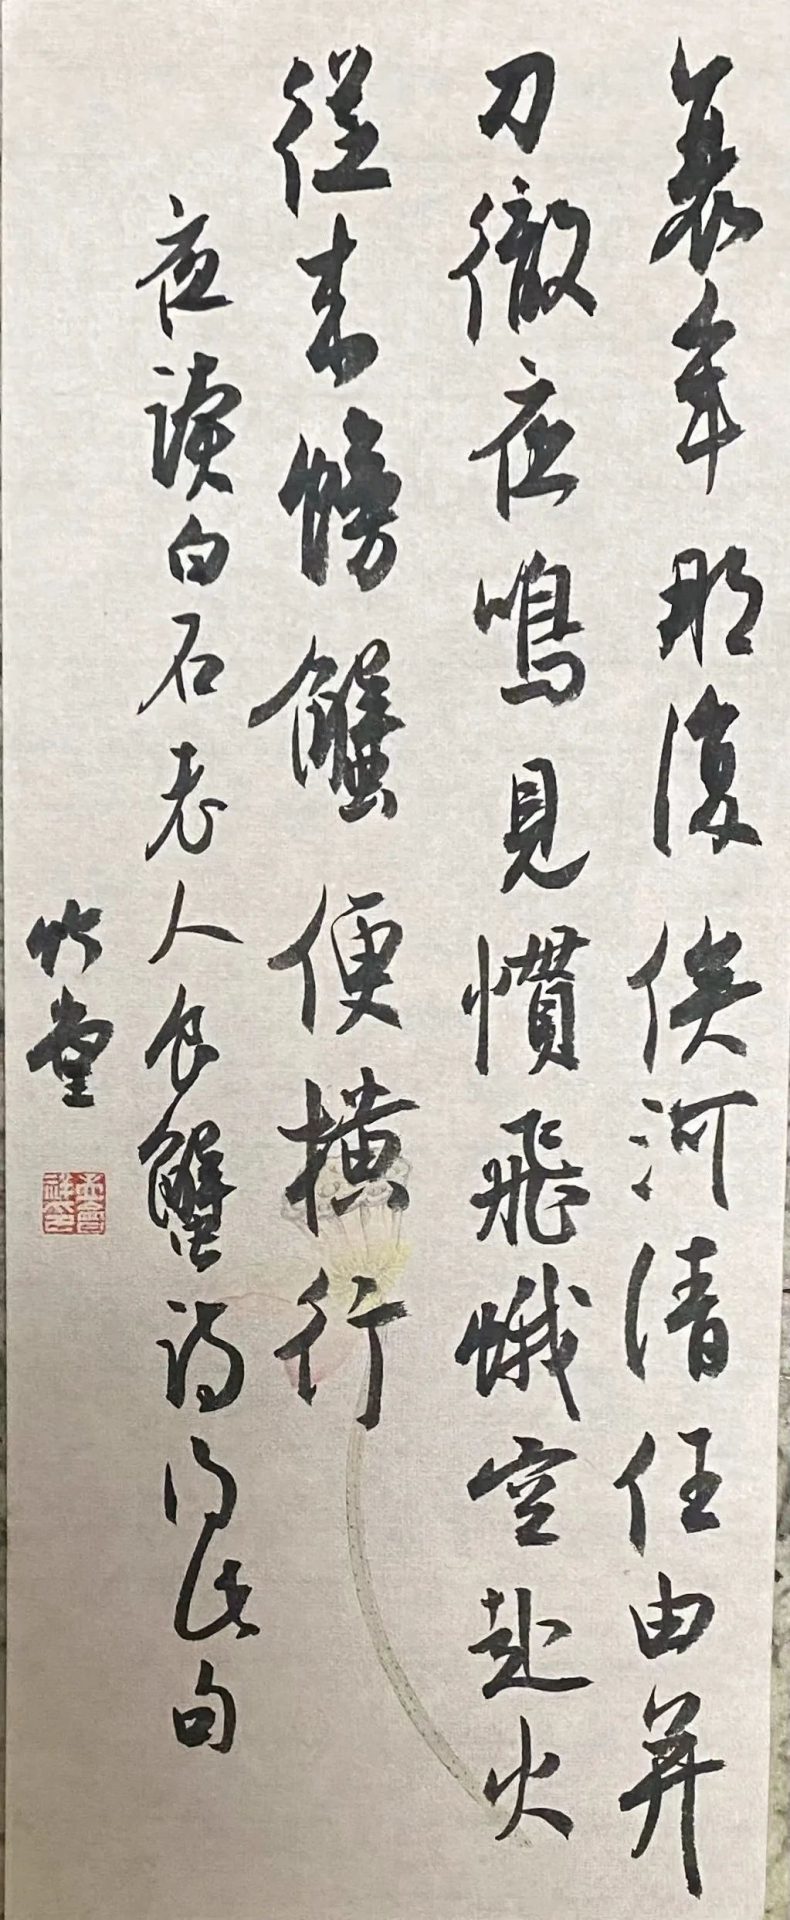 衰年那復俟河清任由并
刀徹夜鳴見慣飛蛾空赴火
從来螃蟹便橫行
夜讀白石老人食蟹詩得此句
竹堂